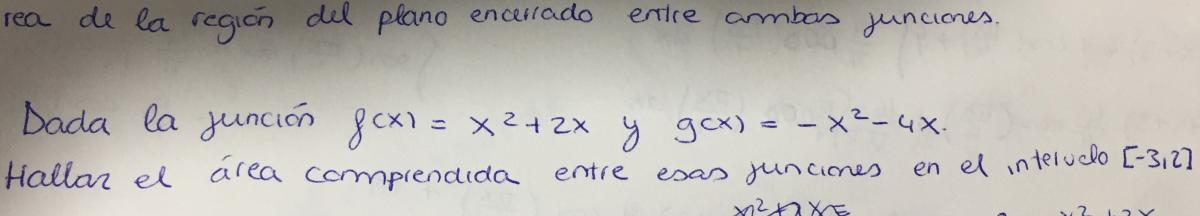 rea de la región del plano encerrado entre ambas funciones.
Dada la función f(x) = x²+2x y g(x) = -x²-4x.
Hallar el área comprendida entre esas funciones en el intervalo [-3,2]